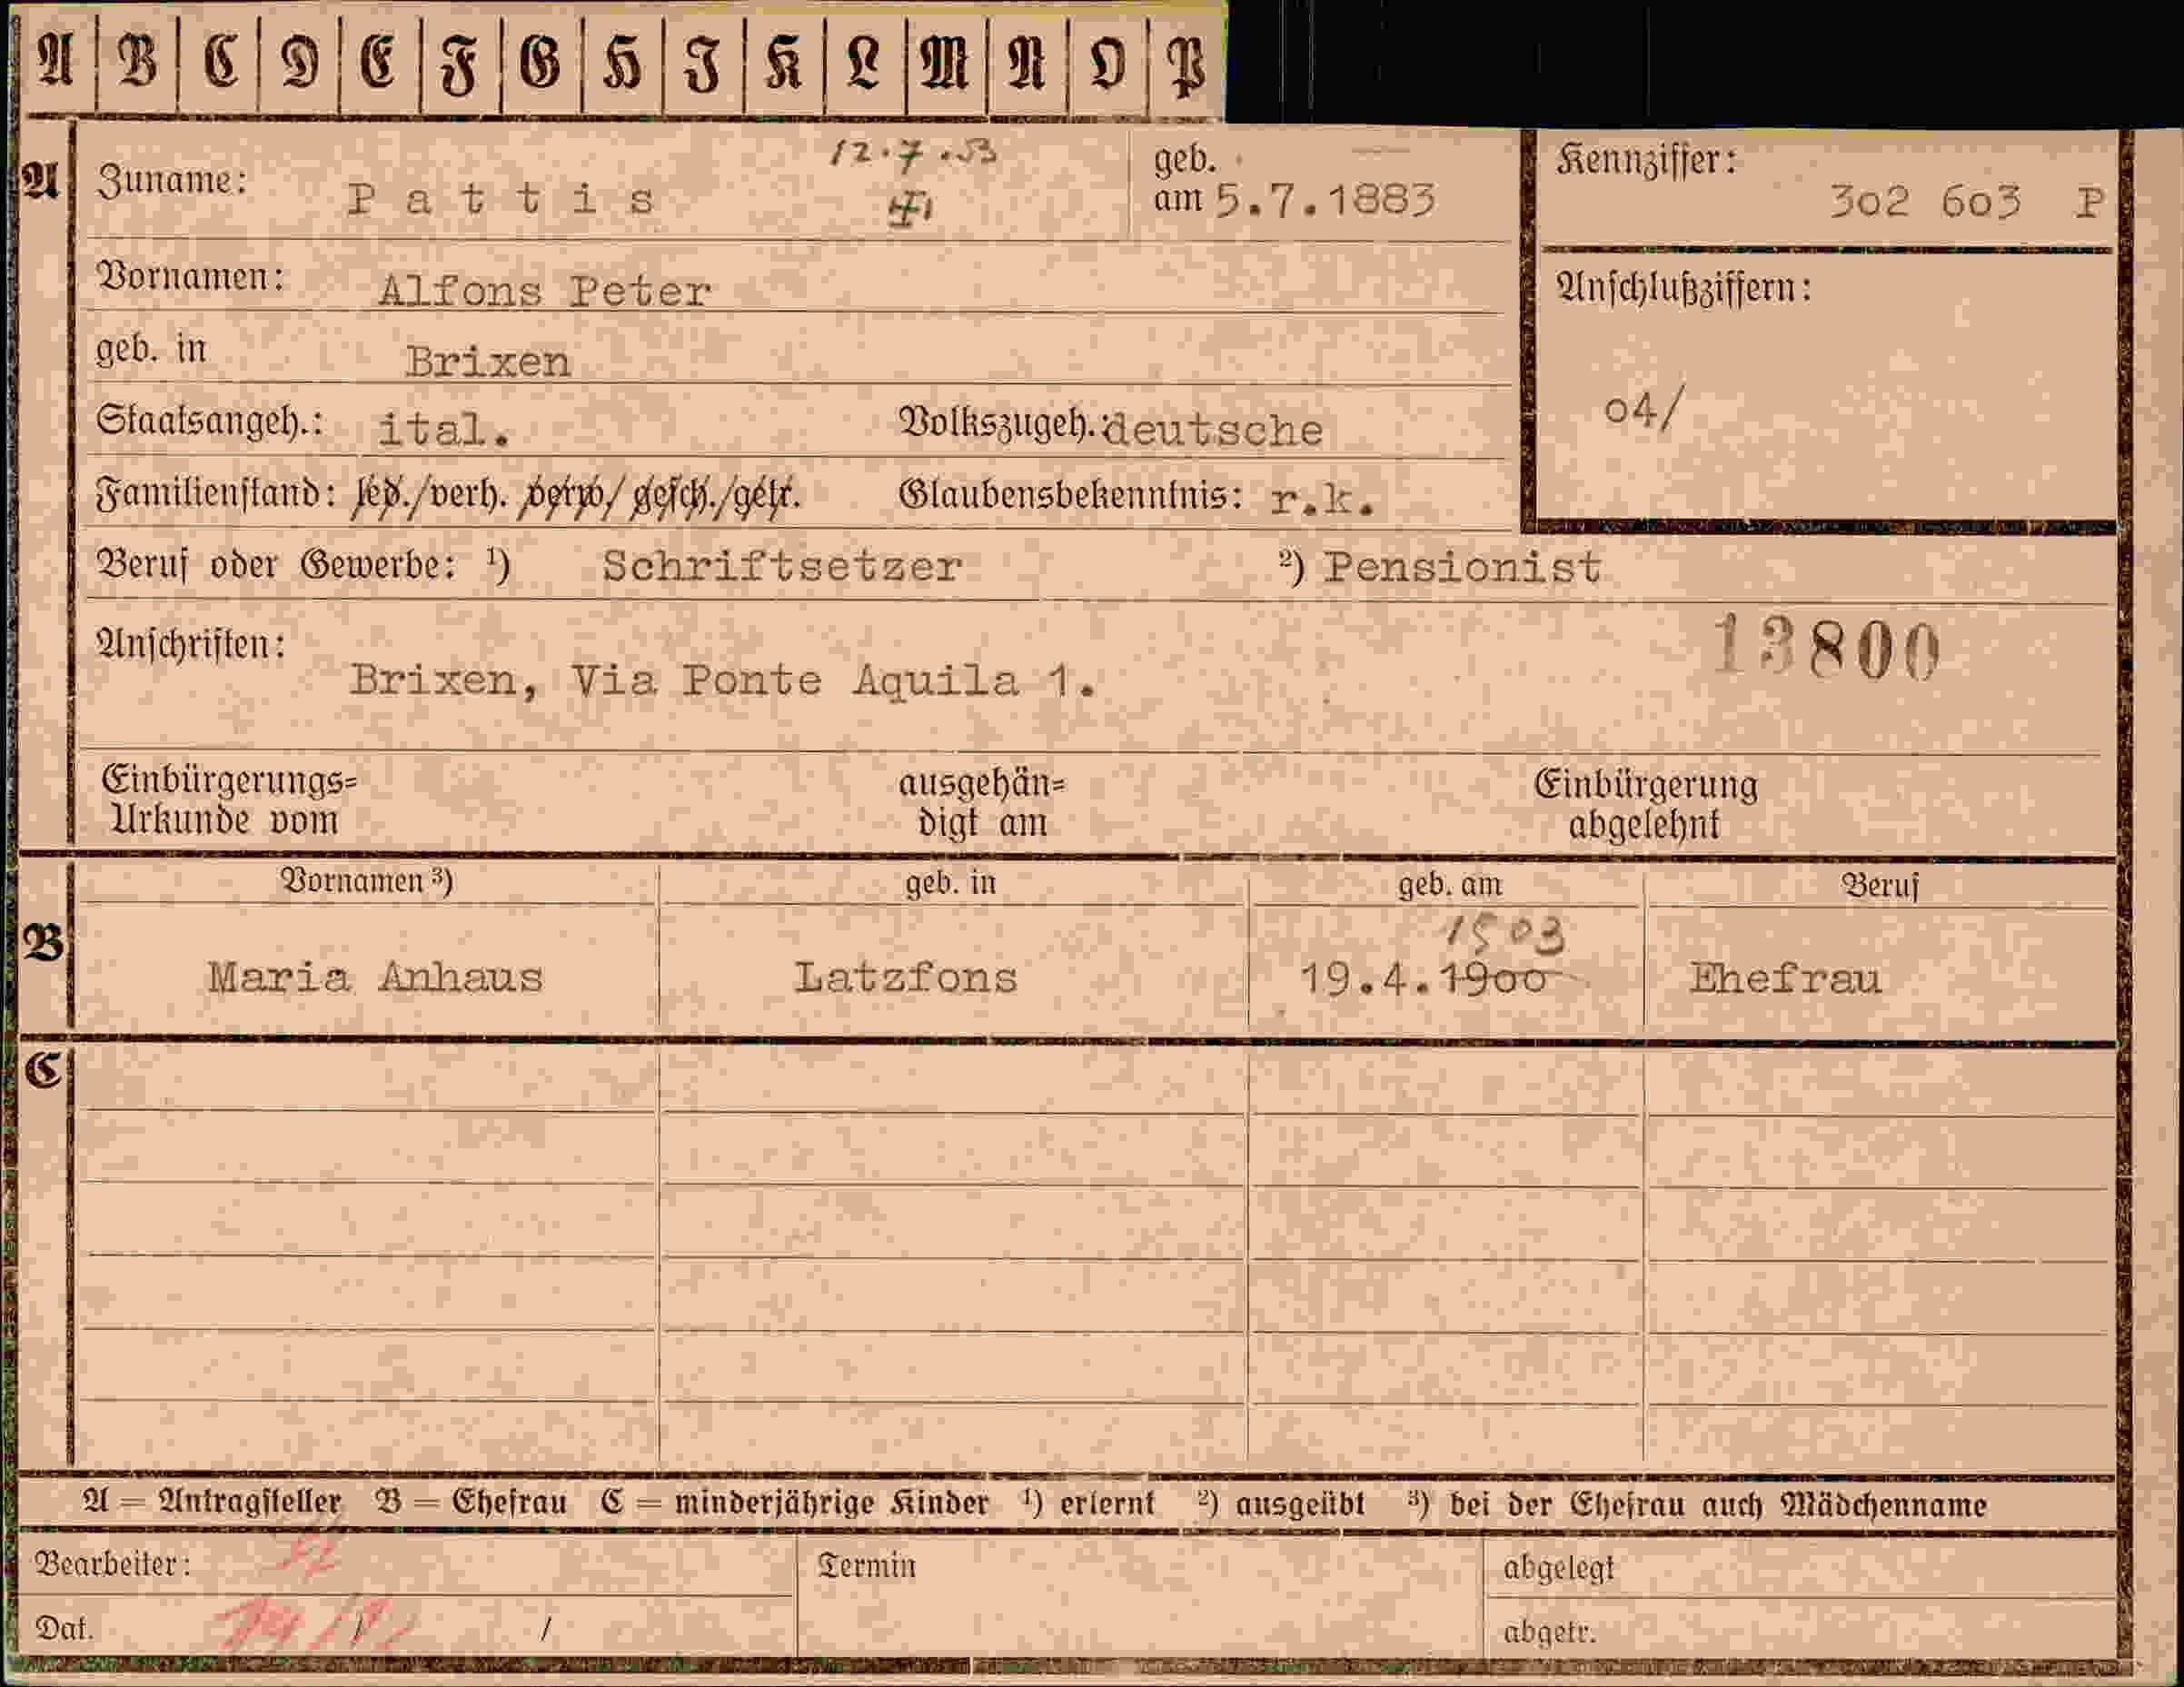 A B C D E F G H I K L M N O P
12.7.53
A Zuname: Pattis geb. am 5.7.1883 Kennziffer: 302 603 P
Vornamen: Alfons Peter
Anschlußziffern:
geb. in Brixen
04/
Staatsangeh.: ital. Volkszugeh.: deutsche
Familienstand: led./verh. verw/ gesch./getr. Glaubensbekenntnis: r.k.
Beruf oder Gewerbe: ¹) Schriftsetzer ²) Pensionist
13800
Anschriften: Brixen, Via Ponte Aquila 1.
Einbürgerungs= ausgehän= Einbürgerung
Urkunde vom digt am abgelehnt
Vornamen ³) geb. in geb. am Beruf
1903
B Maria Anhaus Latzfons 19.4.1900 Ehefrau
C
A = Antragsteller B = Ehefrau C = minderjährige Kinder ¹) erlernt ²) ausgeübt ³) bei der Ehefrau auch Mädchenname
Bearbeiter: Termin abgelegt
Dat. / / abgetr.